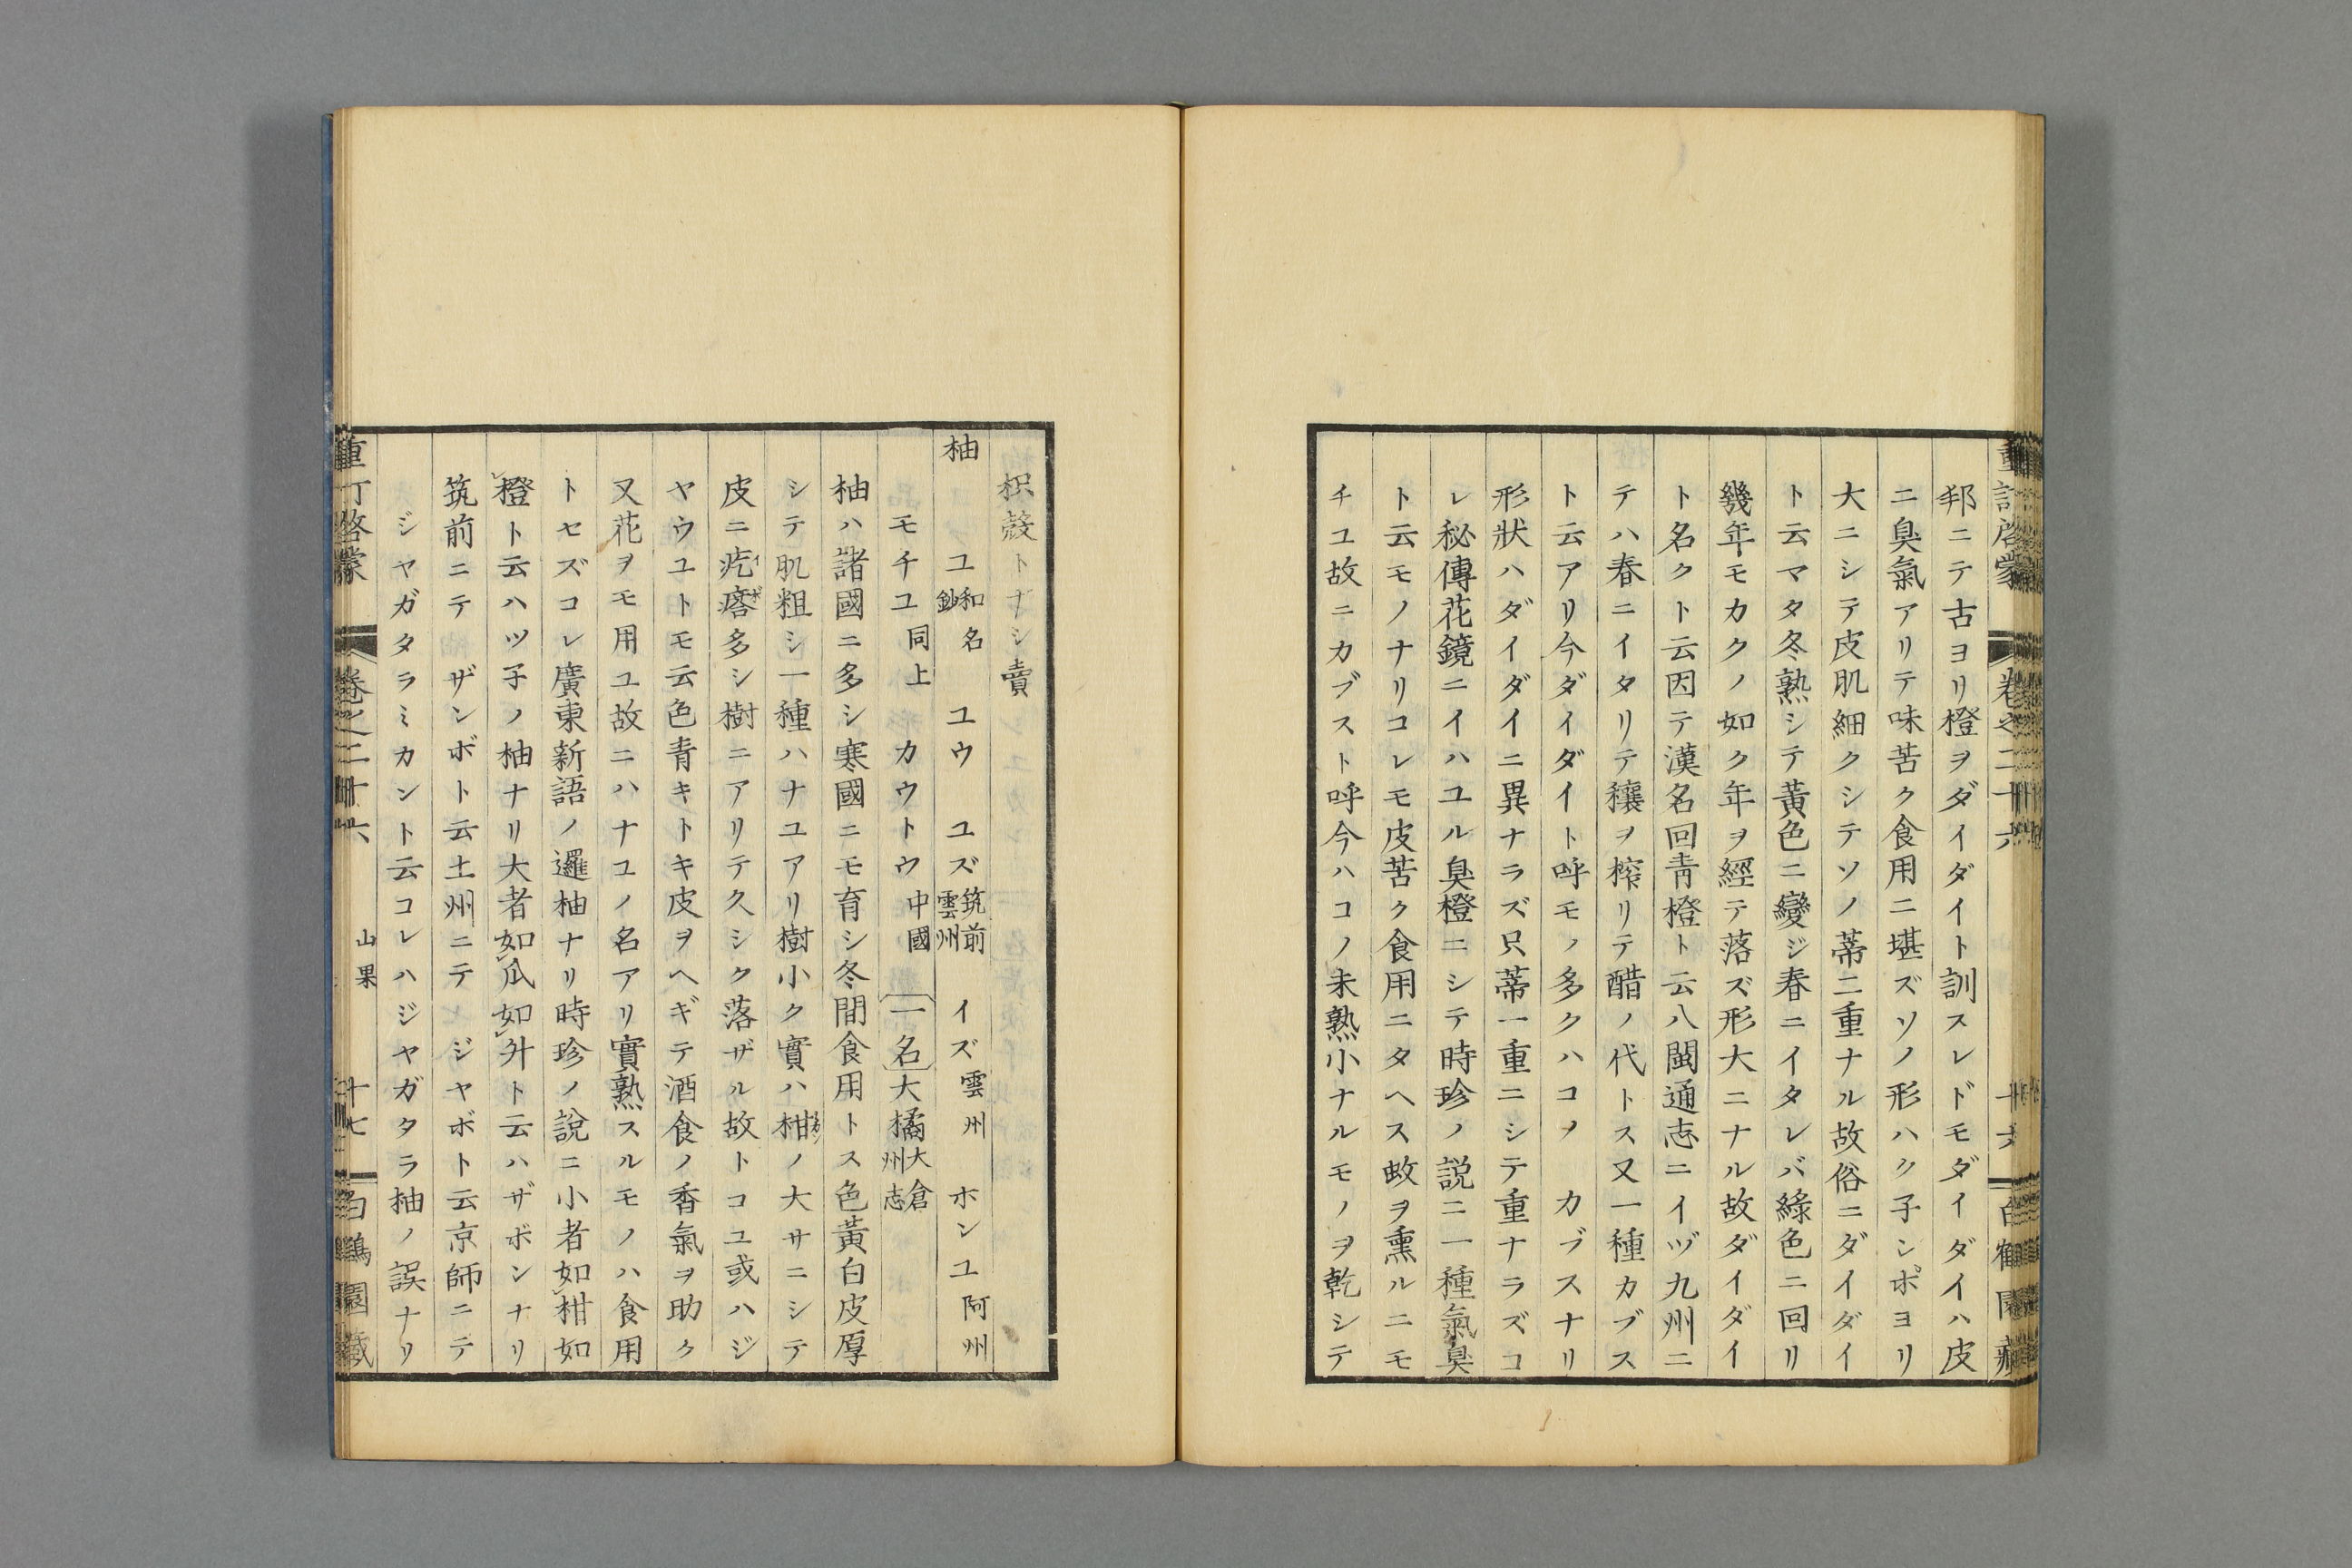 邦ニテ古ヨリ橙ヲダイダイト訓スレドモダイダイハ皮
ニ臭氣アリテ味苦ク食用ニ堪ズソノ形ハク子ンポヨリ
大ニシテ皮肌細クシテソノ蒂二重ナル故俗ニダイダイ
ト云マタ冬熟シテ黃色ニ變ジ春ニイタレバ綠色ニ回リ
幾年モカクノ如ク年ヲ經テ落ズ形大ニナル故ダイダイ
ト名クト云因テ漢名回靑橙ト云八閩通志ニイヅ九州ニ
テハ春ニイタリテ穰ヲ榨リテ醋ノ代トス又一種カブス
ト云アリ今ダイダイト呼モノ多クハコノ カブスナリ
形狀ハダイダイニ異ナラズ只蒂一重ニシテ重ナラズコ
レ秘傳花鏡ニイハユル臭橙ニシテ時珍ノ説ニ一種氣臭
ト云モノナリコレモ皮苦ク食用ニタヘス蚊ヲ熏ルニモ
チユ故ニカブスト呼今ハコノ未熟小ナルモノヲ乾シテ
枳殼トナシ賣
柚 ユ 和名鈔 ユウ ユズ 筑前雲州 イズ 雲州 ホンユ 阿州
モチユ 同上 カウトウ 中國 一名 大橘 大倉州志
柚ハ諸國ニ多シ寒國ニモ育シ冬間食用トス色黃白皮厚
シテ肌粗シ一種ハナユアリ樹小ク實ハ柑ノ大サニシテ
皮ニ疙瘩多シ樹ニアリテ久シク落ザル故トコユ或ハジ
ヤウユトモ云色青キトキ皮ヲヘギテ酒食ノ香氣ヲ助ク
又花ヲモ用ユ故ニハナユノ名アリ實熟スルモノハ食用
トセズコレ廣東新語ノ邏柚ナリ時珍ノ說ニ小者如柑如
橙ト云ハツ子ノ柚ナリ大者如瓜如升ト云ハザボンナリ
筑前ニテ ザンボト云土州ニテ ジヤボト云京師ニテ
ジヤガタラミカント云コレハジヤガタラ柚ノ誤ナリ
重訂啓蒙 卷之二十六 山果 十七